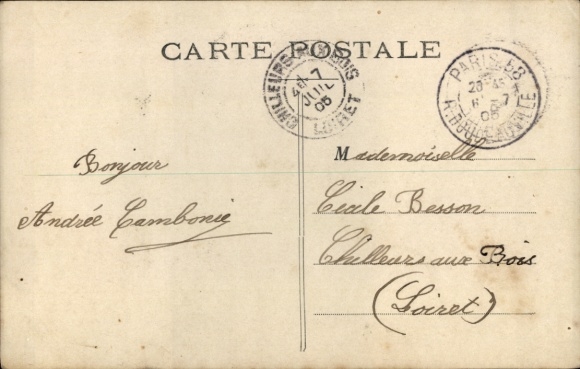 CARTE POSTALE
CHILLEURS-AUX-BOIS
7
JUIL
05
LOIRET
PARIS 58
20
6 7
05
Bonjour
Andrée Cambonie
Mademoiselle
Cécile Besson
Chilleurs aux Bois
(Loiret)